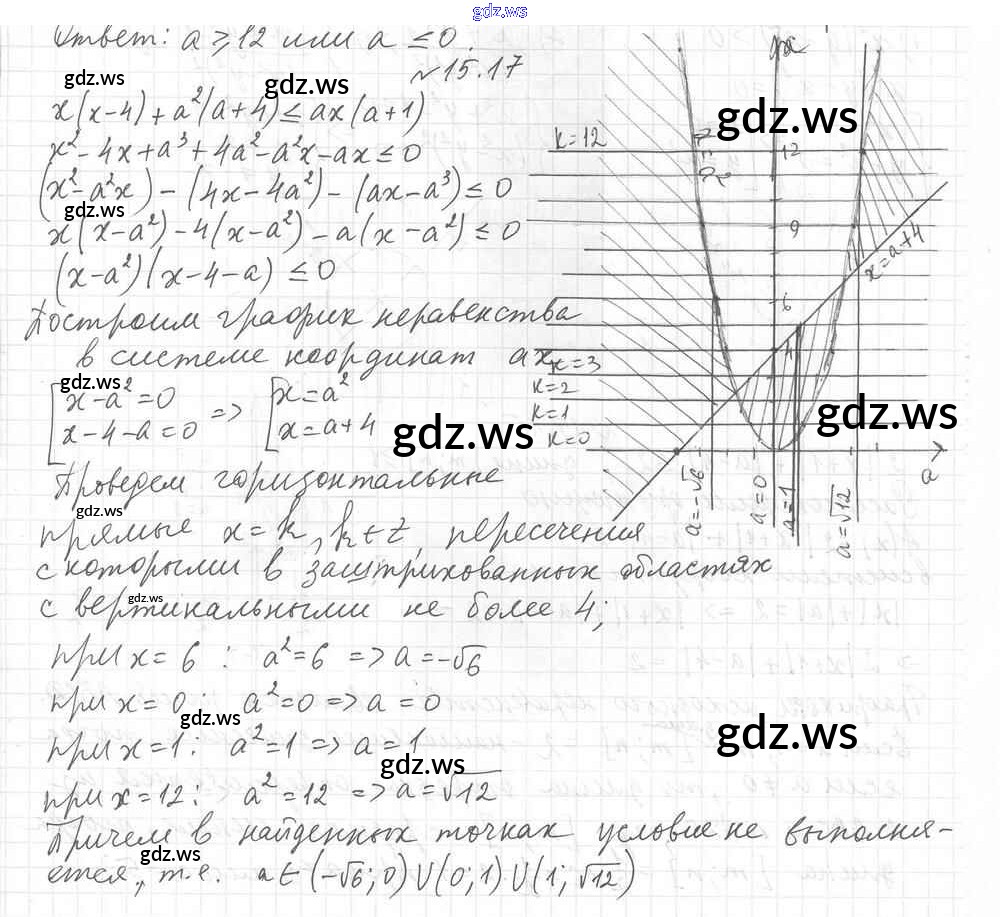 gdz.ws
Ответ: a ⩾ 12 или a ≤ 0.
№15.17
gdz.ws
gdz.ws
x(x-4)+a²(a+4) ≤ ax(a+1)
x²-4x+a³+4a²-a²x-ax ≤ 0
(x²-a²x)-(4x-4a²)-(ax-a³) ≤ 0
gdz.ws
x(x-a²)-4(x-a²)-a(x-a²) ≤ 0
(x-a²)(x-4-a) ≤ 0
Построим график неравенства
в системе координат ax
gdz.ws
x-a²=0
x-4-a=0
=>
x=a²
x=a+4
gdz.ws
Проведем горизонтальные
gdz.ws
прямые x=k, k∈Z, пересечения
с которыми в заштрихованных областях
gdz.ws
с вертикальными не более 4;
при x=6: a²=6 => a=-√6
при x=0: a²=0 => a=0
gdz.ws
при x=1: a²=1 => a=1
gdz.ws
при x=12: a²=12 => a=√12
Причем в найденных точках условие не выполня-
gdz.ws
ется, т.е. a∈(-√6;0)∪(0;1)∪(1;√12)
x
gdz.ws
k=12
12
9
x=a+4
6
k=3
4
k=2
k=1
k=0
gdz.ws
a
a=-√6
a=0
a=1
a=√12
gdz.ws